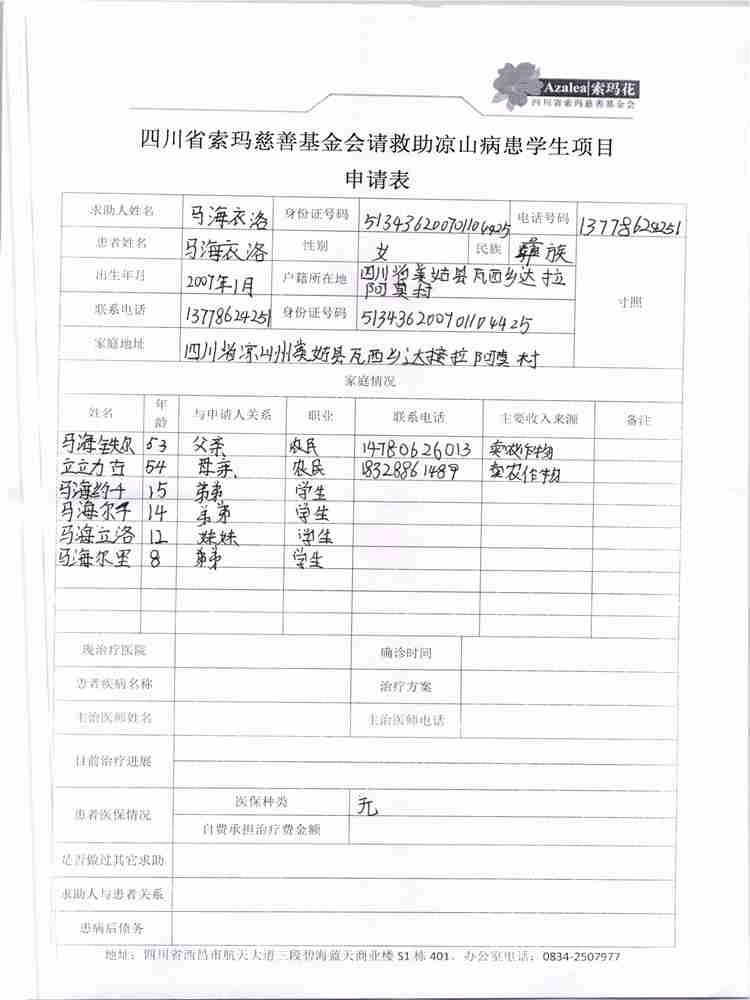 Azalea 索玛花
四川省索玛慈善基金会
四川省索玛慈善基金会请救助凉山病患学生项目
申请表
求助人姓名 马海衣洛 身份证号码 513436200701104425 电话号码 13778624251
患者姓名 马海衣洛 性别 女 民族 彝族
出生年月 2007年1月 户籍所在地 四川省美姑县瓦西乡达 拉
阿莫村
寸照
联系电话 13778624251 身份证号码 513436200701104425
家庭地址 四川省凉山州美姑县瓦西乡达接拉阿莫村
家庭情况
姓名 年龄 与申请人关系 职业 联系电话 主要收入来源 备注
马海铁尔 53 父亲 农民 14780626013 卖农作物
立立力古 54 母亲 农民 18328861489 卖农作物
马海约千 15 弟弟 学生
马海尔千 14 弟弟 学生
马海立洛 12 妹妹 学生
马海尔里 8 弟弟 学生
现治疗医院 确诊时间
患者疾病名称 治疗方案
主治医师姓名 主治医师电话
目前治疗进展
患者医保情况 医保种类 无
自费承担治疗费金额
是否做过其它求助
求助人与患者关系
患病后债务
地址：四川省西昌市航天大道三段碧海蓝天商业楼 S1 栋 401。办公室电话：0834-2507977